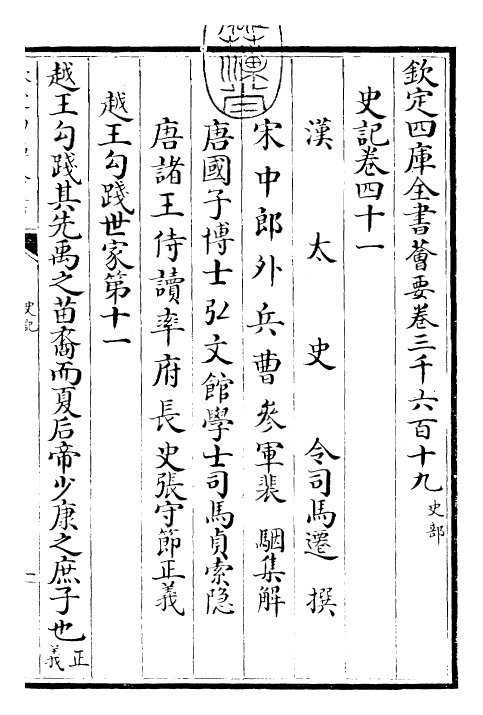 欽定四庫全書薈要卷三千六百十九 史部
史記卷四十一
漢太史令司馬遷撰
宋中郎外兵曹參軍裴駰集解
唐國子博士弘文館學士司馬貞索隐
唐諸王侍讀率府長史張守節正義
越王勾踐世家第十一
越王勾踐其先禹之苗裔而夏后帝少康之庶子也 正義
史記
一